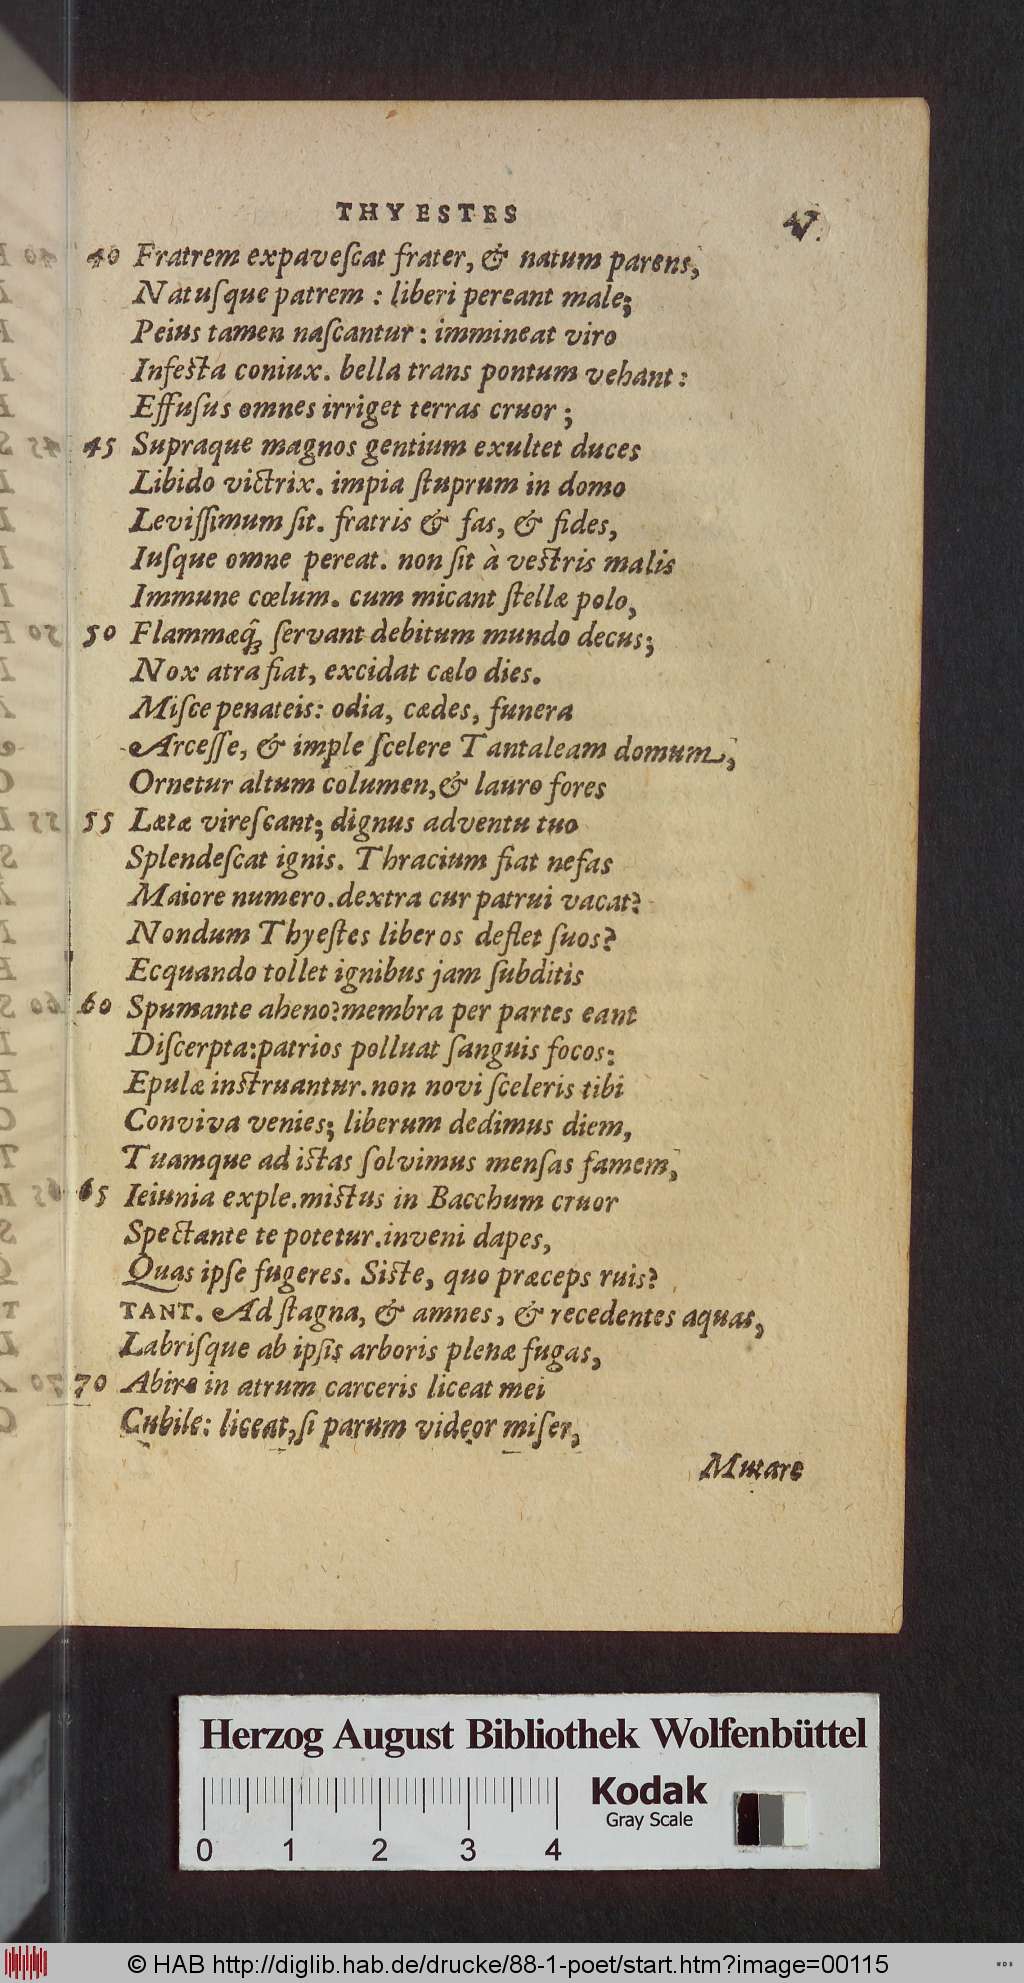 THYESTES 47.
40 Fratrem expaveſcat frater, & natum parens,
Natuſque patrem : liberi pereant male;
Peius tamen naſcantur : immineat viro
Infeſta coniux. bella trans pontum vehant :
Effuſus omnes irriget terras cruor ;
45 Supraque magnos gentium exultet duces
Libido victrix. impia ſtuprum in domo
Leviſſimum ſit. fratris & fas, & fides,
Iuſque omne pereat. non ſit à veſtris malis
Immune cœlum. cum micant ſtellæ polo,
50 Flammæq́; ſervant debitum mundo decus;
Nox atra fiat, excidat cælo dies.
Miſce penateis: odia, cædes, funera
Arceſſe, & imple ſcelere Tantaleam domum,
Ornetur altum columen,& lauro fores
55 Lætæ vireſcant; dignus adventu tuo
Splendeſcat ignis. Thracium fiat nefas
Maiore numero.dextra cur patrui vacat?
Nondum Thyeſtes liberos deflet ſuos?
Ecquando tollet ignibus jam ſubditis
60 Spumante aheno?membra per partes eant
Diſcerpta:patrios polluat ſanguis focos:
Epulæ inſtruantur.non novi ſceleris tibi
Conviva venies; liberum dedimus diem,
Tuamque ad iſtas ſolvimus menſas famem,
65 Ieiunia exple.miſtus in Bacchum cruor
Spectante te potetur.inveni dapes,
Quas ipſe fugeres. Siſte, quo præceps ruis?
TANT. Ad ſtagna, & amnes, & recedentes aquas,
Labriſque ab ipſis arboris plenæ fugas,
70 Abire in atrum carceris liceat mei
Cubile: liceat,ſi parum videor miſer,
Mutare
Herzog August Bibliothek Wolfenbüttel
Kodak
Gray Scale
0 1 2 3 4
© HAB http://diglib.hab.de/drucke/88-1-poet/start.htm?image=00115